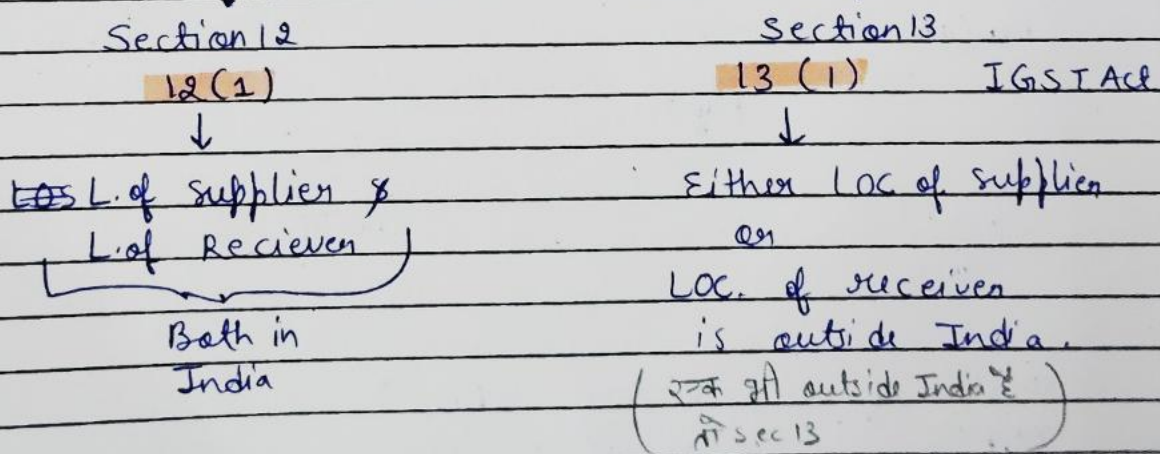 Section 12
12(1)
↓
L. of supplier &
L. of Reciever
Both in
India
Section 13
13 (1) IGST Act
↓
Either Loc of supplier
or
LOC. of receiver
is outside India.
(एक भी outside India है
तो sec 13)